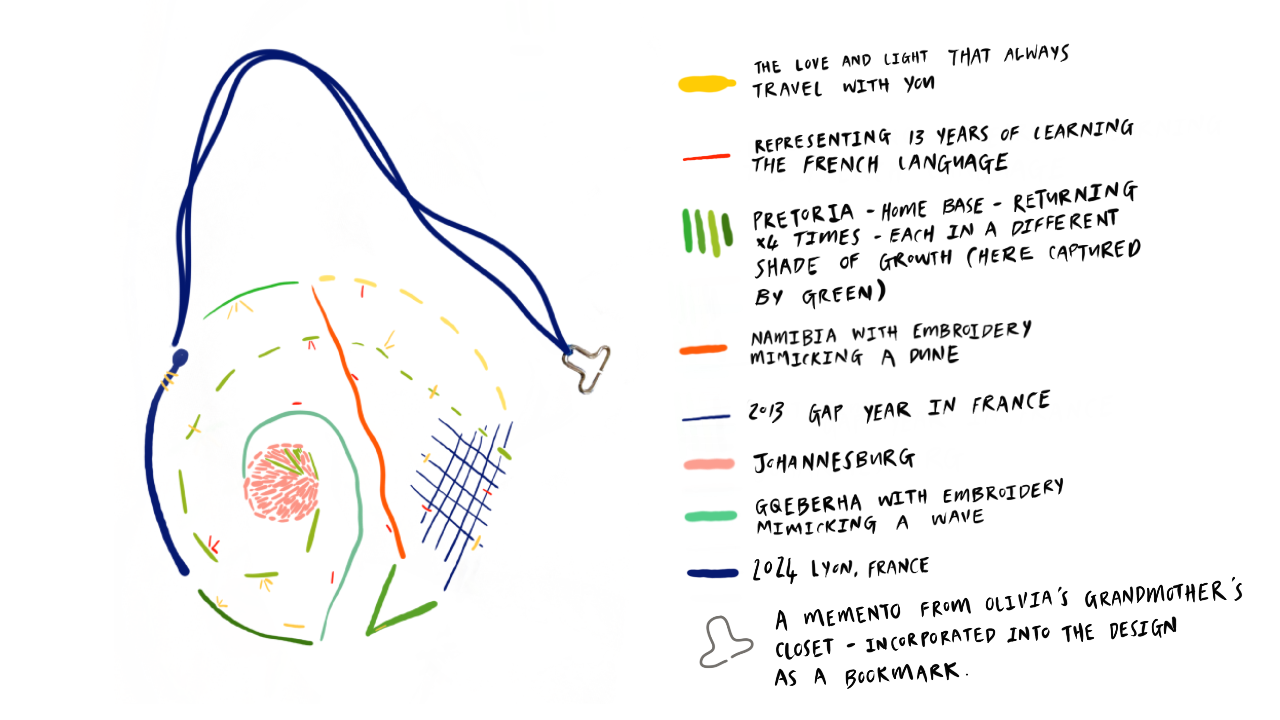 THE LOVE AND LIGHT THAT ALWAYS
TRAVEL WITH YOU
REPRESENTING 13 YEARS OF LEARNING
THE FRENCH LANGUAGE
PRETORIA - HOME BASE - RETURNING
x4 TIMES - EACH IN A DIFFERENT
SHADE OF GROWTH (HERE CAPTURED
BY GREEN)
NAMIBIA WITH EMBROIDERY
MIMICKING A DUNE
2013 GAP YEAR IN FRANCE
JOHANNESBURG
GQEBERHA WITH EMBROIDERY
MIMICKING A WAVE
2024 LYON, FRANCE
A MEMENTO FROM OLIVIA'S GRANDMOTHER'S
CLOSET - INCORPORATED INTO THE DESIGN
AS A BOOKMARK.